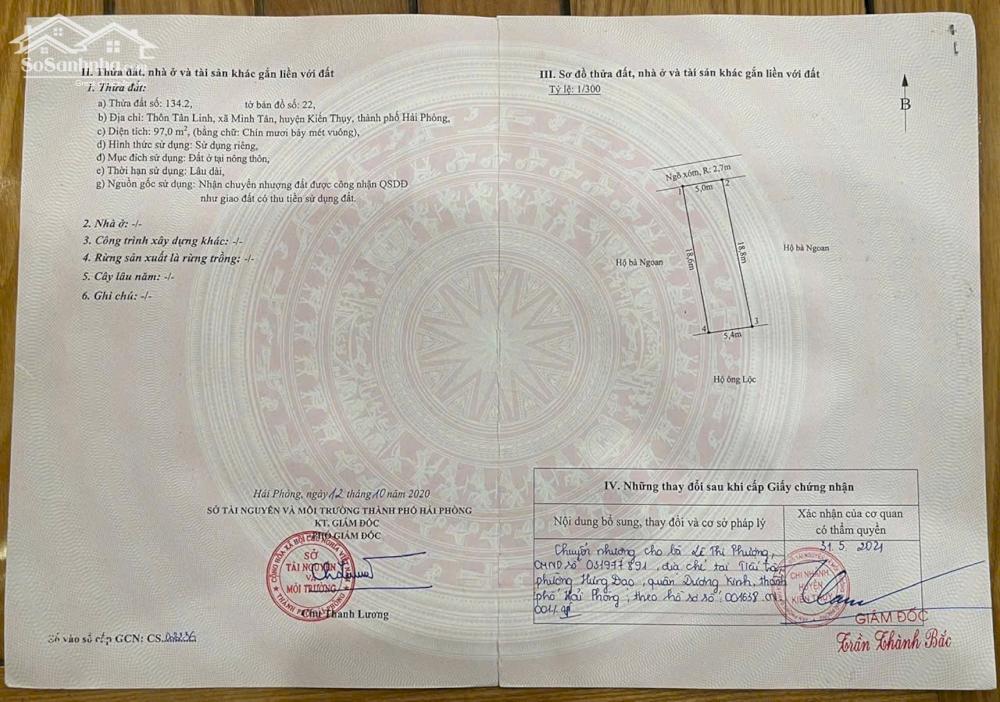 SoSanhnha.com
II. Thửa đất, nhà ở và tài sản khác gắn liền với đất
1. Thửa đất:
a) Thửa đất số: 134.2, tờ bản đồ số: 22,
b) Địa chỉ: Thôn Tân Linh, xã Minh Tân, huyện Kiến Thụy, thành phố Hải Phòng,
c) Diện tích: 97,0 m², (bằng chữ: Chín mươi bảy mét vuông),
d) Hình thức sử dụng: Sử dụng riêng,
đ) Mục đích sử dụng: Đất ở tại nông thôn,
e) Thời hạn sử dụng: Lâu dài,
g) Nguồn gốc sử dụng: Nhận chuyển nhượng đất được công nhận QSDĐ
như giao đất có thu tiền sử dụng đất.
2. Nhà ở: -/-
3. Công trình xây dựng khác: -/-
4. Rừng sản xuất là rừng trồng: -/-
5. Cây lâu năm: -/-
6. Ghi chú: -/-
Hải Phòng, ngày 12 tháng 10 năm 2020
SỞ TÀI NGUYÊN VÀ MÔI TRƯỜNG THÀNH PHỐ HẢI PHÒNG
KT. GIÁM ĐỐC
PHÓ GIÁM ĐỐC
SỞ
TÀI NGUYÊN
VÀ
MÔI TRƯỜNG
Chu Thanh Lương
Số vào sổ cấp GCN: CS
III. Sơ đồ thửa đất, nhà ở và tài sản khác gắn liền với đất
Tỷ lệ: 1/300
B
Ngõ xóm, R: 2,7m
1 5,0m 2
18,6m
18,8m
Hộ bà Ngoan
Hộ bà Ngoan
4 5,4m 3
Hộ ông Lộc
IV. Những thay đổi sau khi cấp Giấy chứng nhận
Nội dung bổ sung, thay đổi và cơ sở pháp lý
Xác nhận của cơ quan
có thẩm quyền
Chuyển nhượng cho bà Lê Thị Phương,
CMND số 031977891, địa chỉ tại
phường Hưng Đạo, quận Dương Kinh, thành
phố Hải Phòng; theo hồ sơ số: 001638.
004.
31.5 2021
CHI NHÁNH
HUYỆN
KIẾN THỤY
GIÁM ĐỐC
Trần Thành Bắc